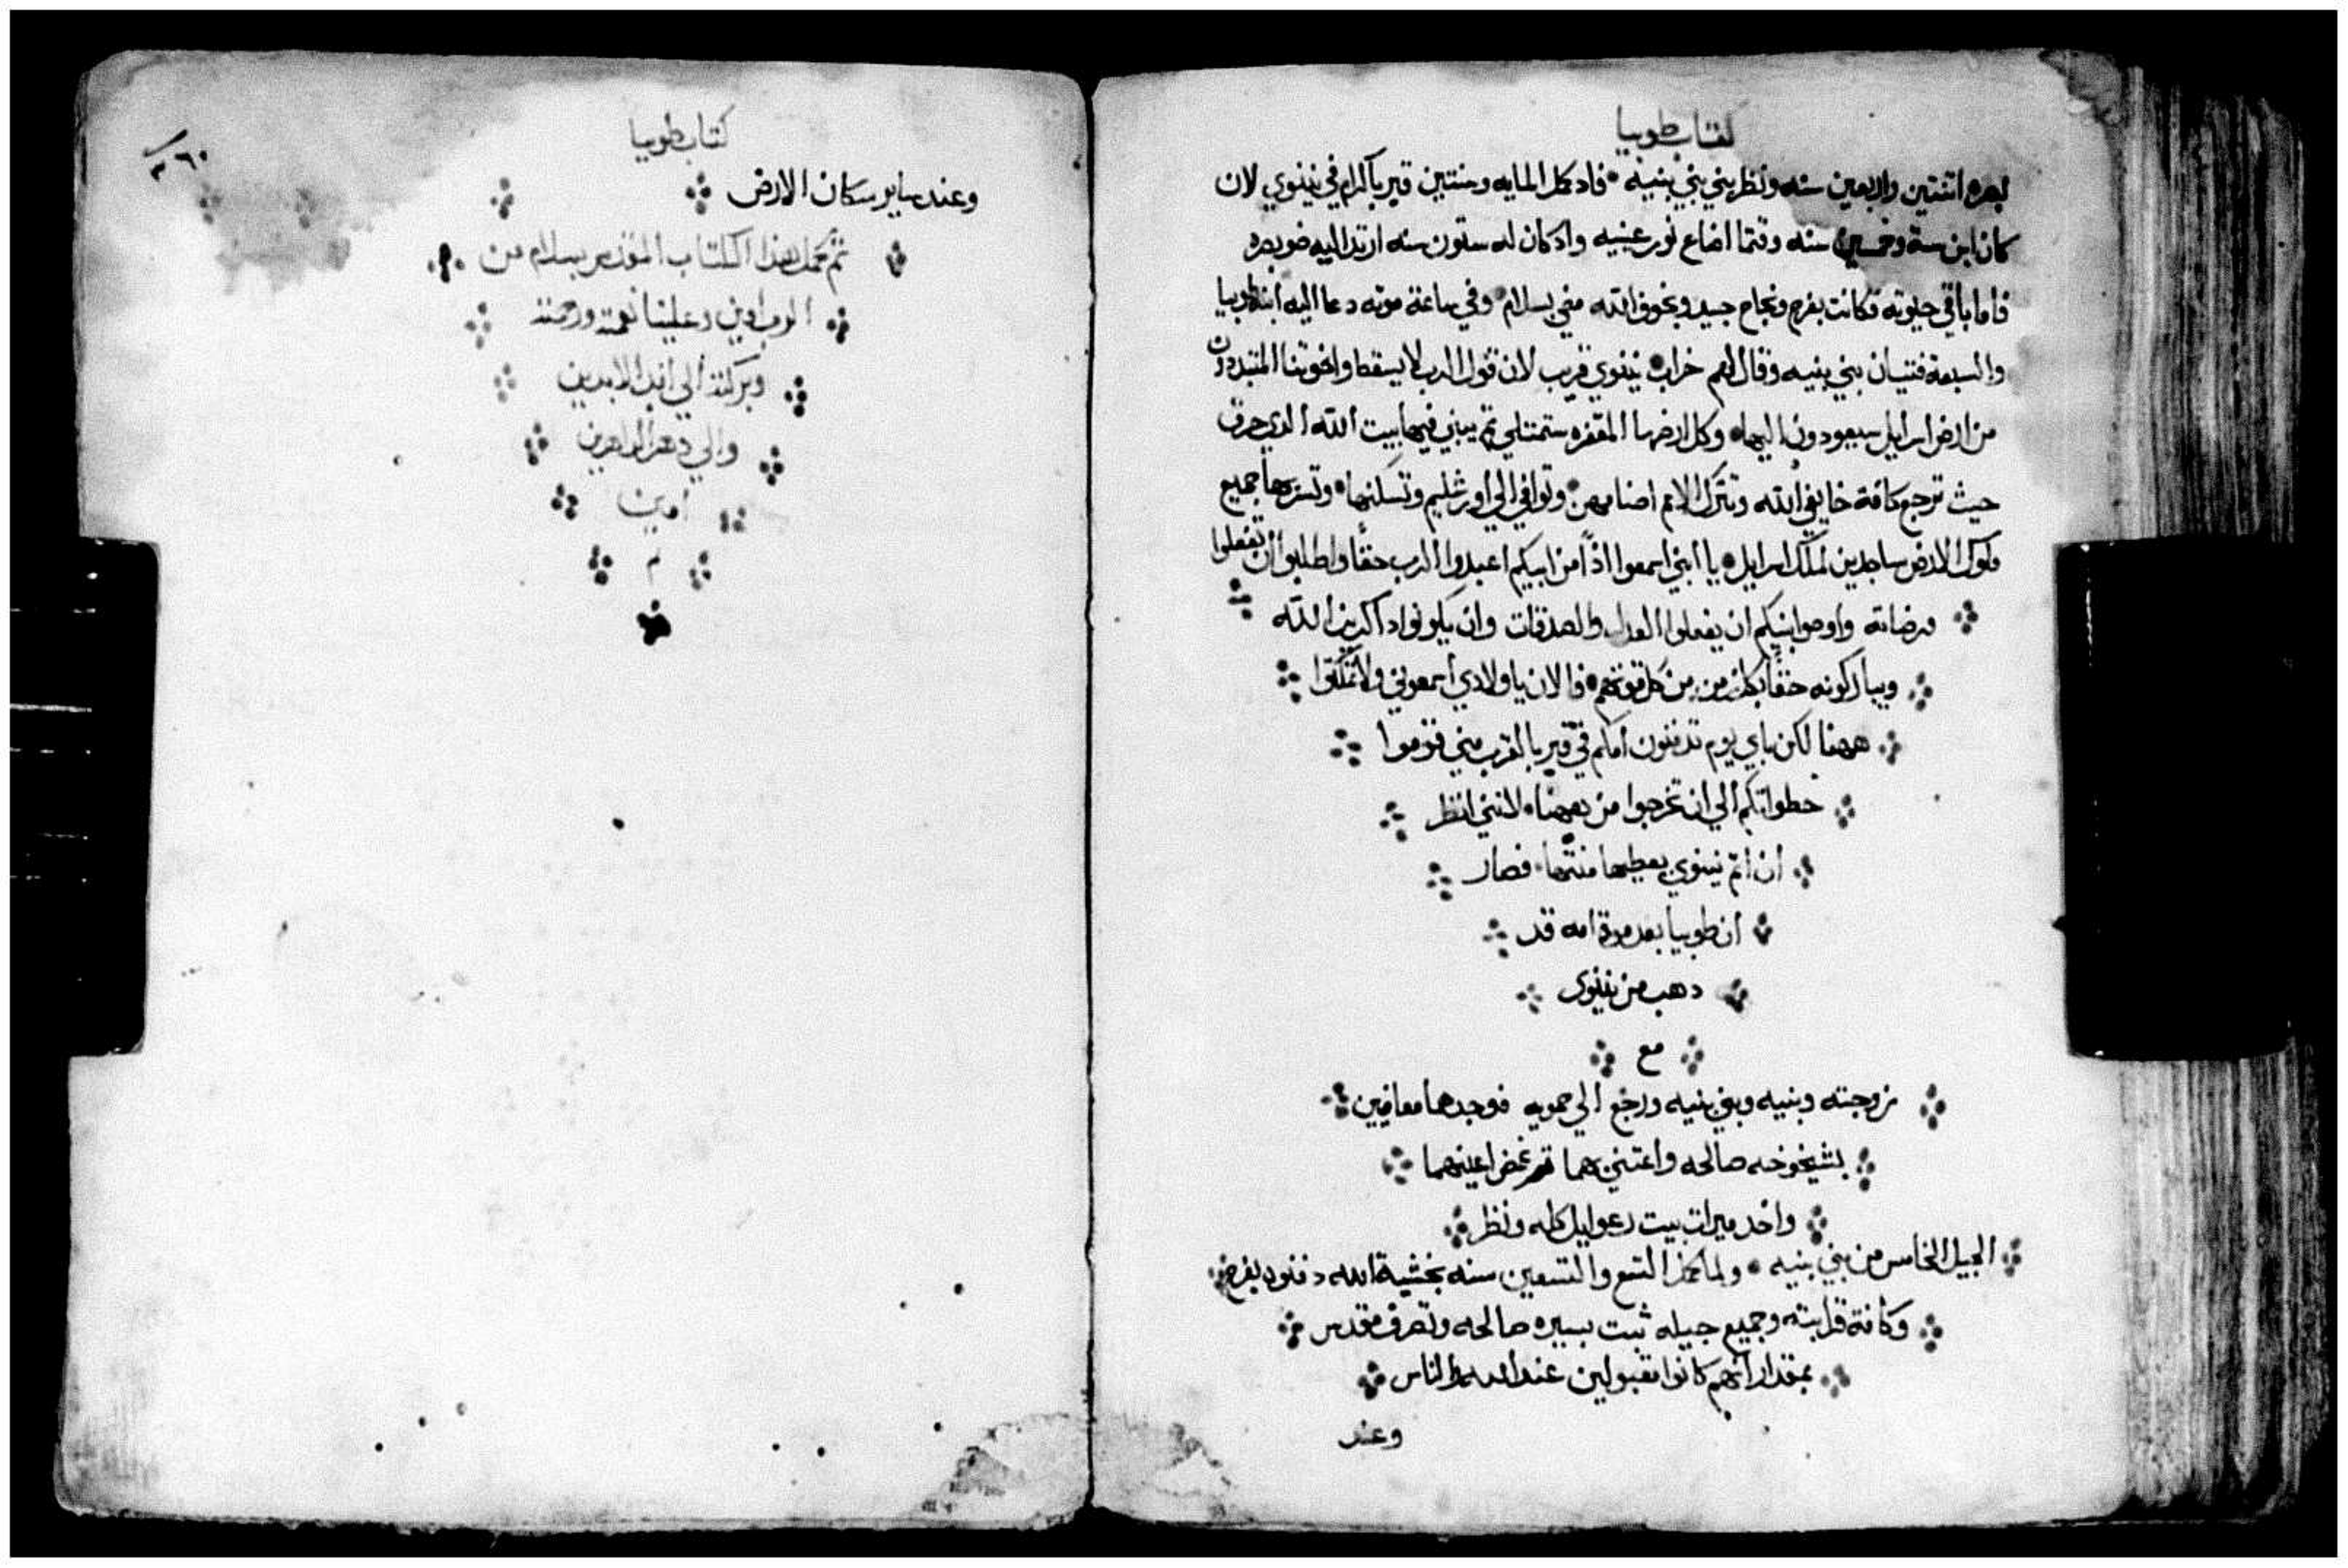 كتاب طوبيا
بصره اتنتين واربعين سنه ونظر بني بني بنيه • فاد كمل المايه وسنتين قبر باكرام في نينوي لان
كان ابن سته وخمسين سنه وقتما اضاع نور عينيه واد كان له ستون سنه ارتد اليه ضو بصره
فاما باقي حيوته فكانت بفرح ونجاح جيد وبخوف الله مضي بسلام • وفي ساعة موته دعا اليه ابنه طوبيا
والسبعة فتيان بني بنيه وقال لهم خراب نينوي قريب لان قول الرب لا يسقط واخوتنا المتبددون
من ارض اسرايل سيعودون اليها • وكل ارضها المقفره ستمتلي تم يبني فيها بيت الله الدي حرق
حيث ترجع كافة خايفي الله وتترك الامم اصنامهن • وتوافي الي اورشليم وتسكنها • وتسر بها جميع
ملوك الارض ساجدين لملك اسرايل • يا ابني اسمعوا اذاً من ابيكم اعبدوا الرب حقاً واطلبوا ان تفعلوا
مرضاته واوصوا بنيكم ان يفعلوا العدل والصدقات وان يكونوا داكرين الله
ويباركونه حقاً بكل زمن من كل قوتهم • فالان يا ولادي اسمعوني ولا تمكتوا
ههنا لكن باي يوم تدفنون امكم في قبر بالقرب مني قوموا
خطواتكم الي ان تخرجوا من ههنا • لانني انظر
ان اتم نينوي يعطيها منتها • فصار
ان طوبيا بعد موة امه قد
دهب من نينوي
مع
زوجته وبنيه وبني بنيه ورجع الي حمويه فوجدهما معافيين
بشيخوخه صالحه واعتني بهما تم غمض اعينهما
واخد ميرات بيت رعوايل كله ونظر
الجيل الخامس من بني بنيه • ولما كمل التسع والتسعين سنه بخشية الله دفنوه بفرح
وكافة قرابته وجميع جيله ثبت بسيره صالحه وتصرف مقدس
بمقدار انهم كانوا مقبولين عند الله والناس
وعند
كتاب طوبيا
٣٦٠
وعند ساير سكان الارض
تم وكمل هذا الكتاب بسلام من
الرب امين وعلينا نعمته ورحمته
وبركته الي ابد الابدين
والي دهر الداهرين
امين
م